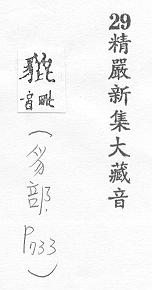 29精嚴新集大藏音
音毗
(豸部. P733)